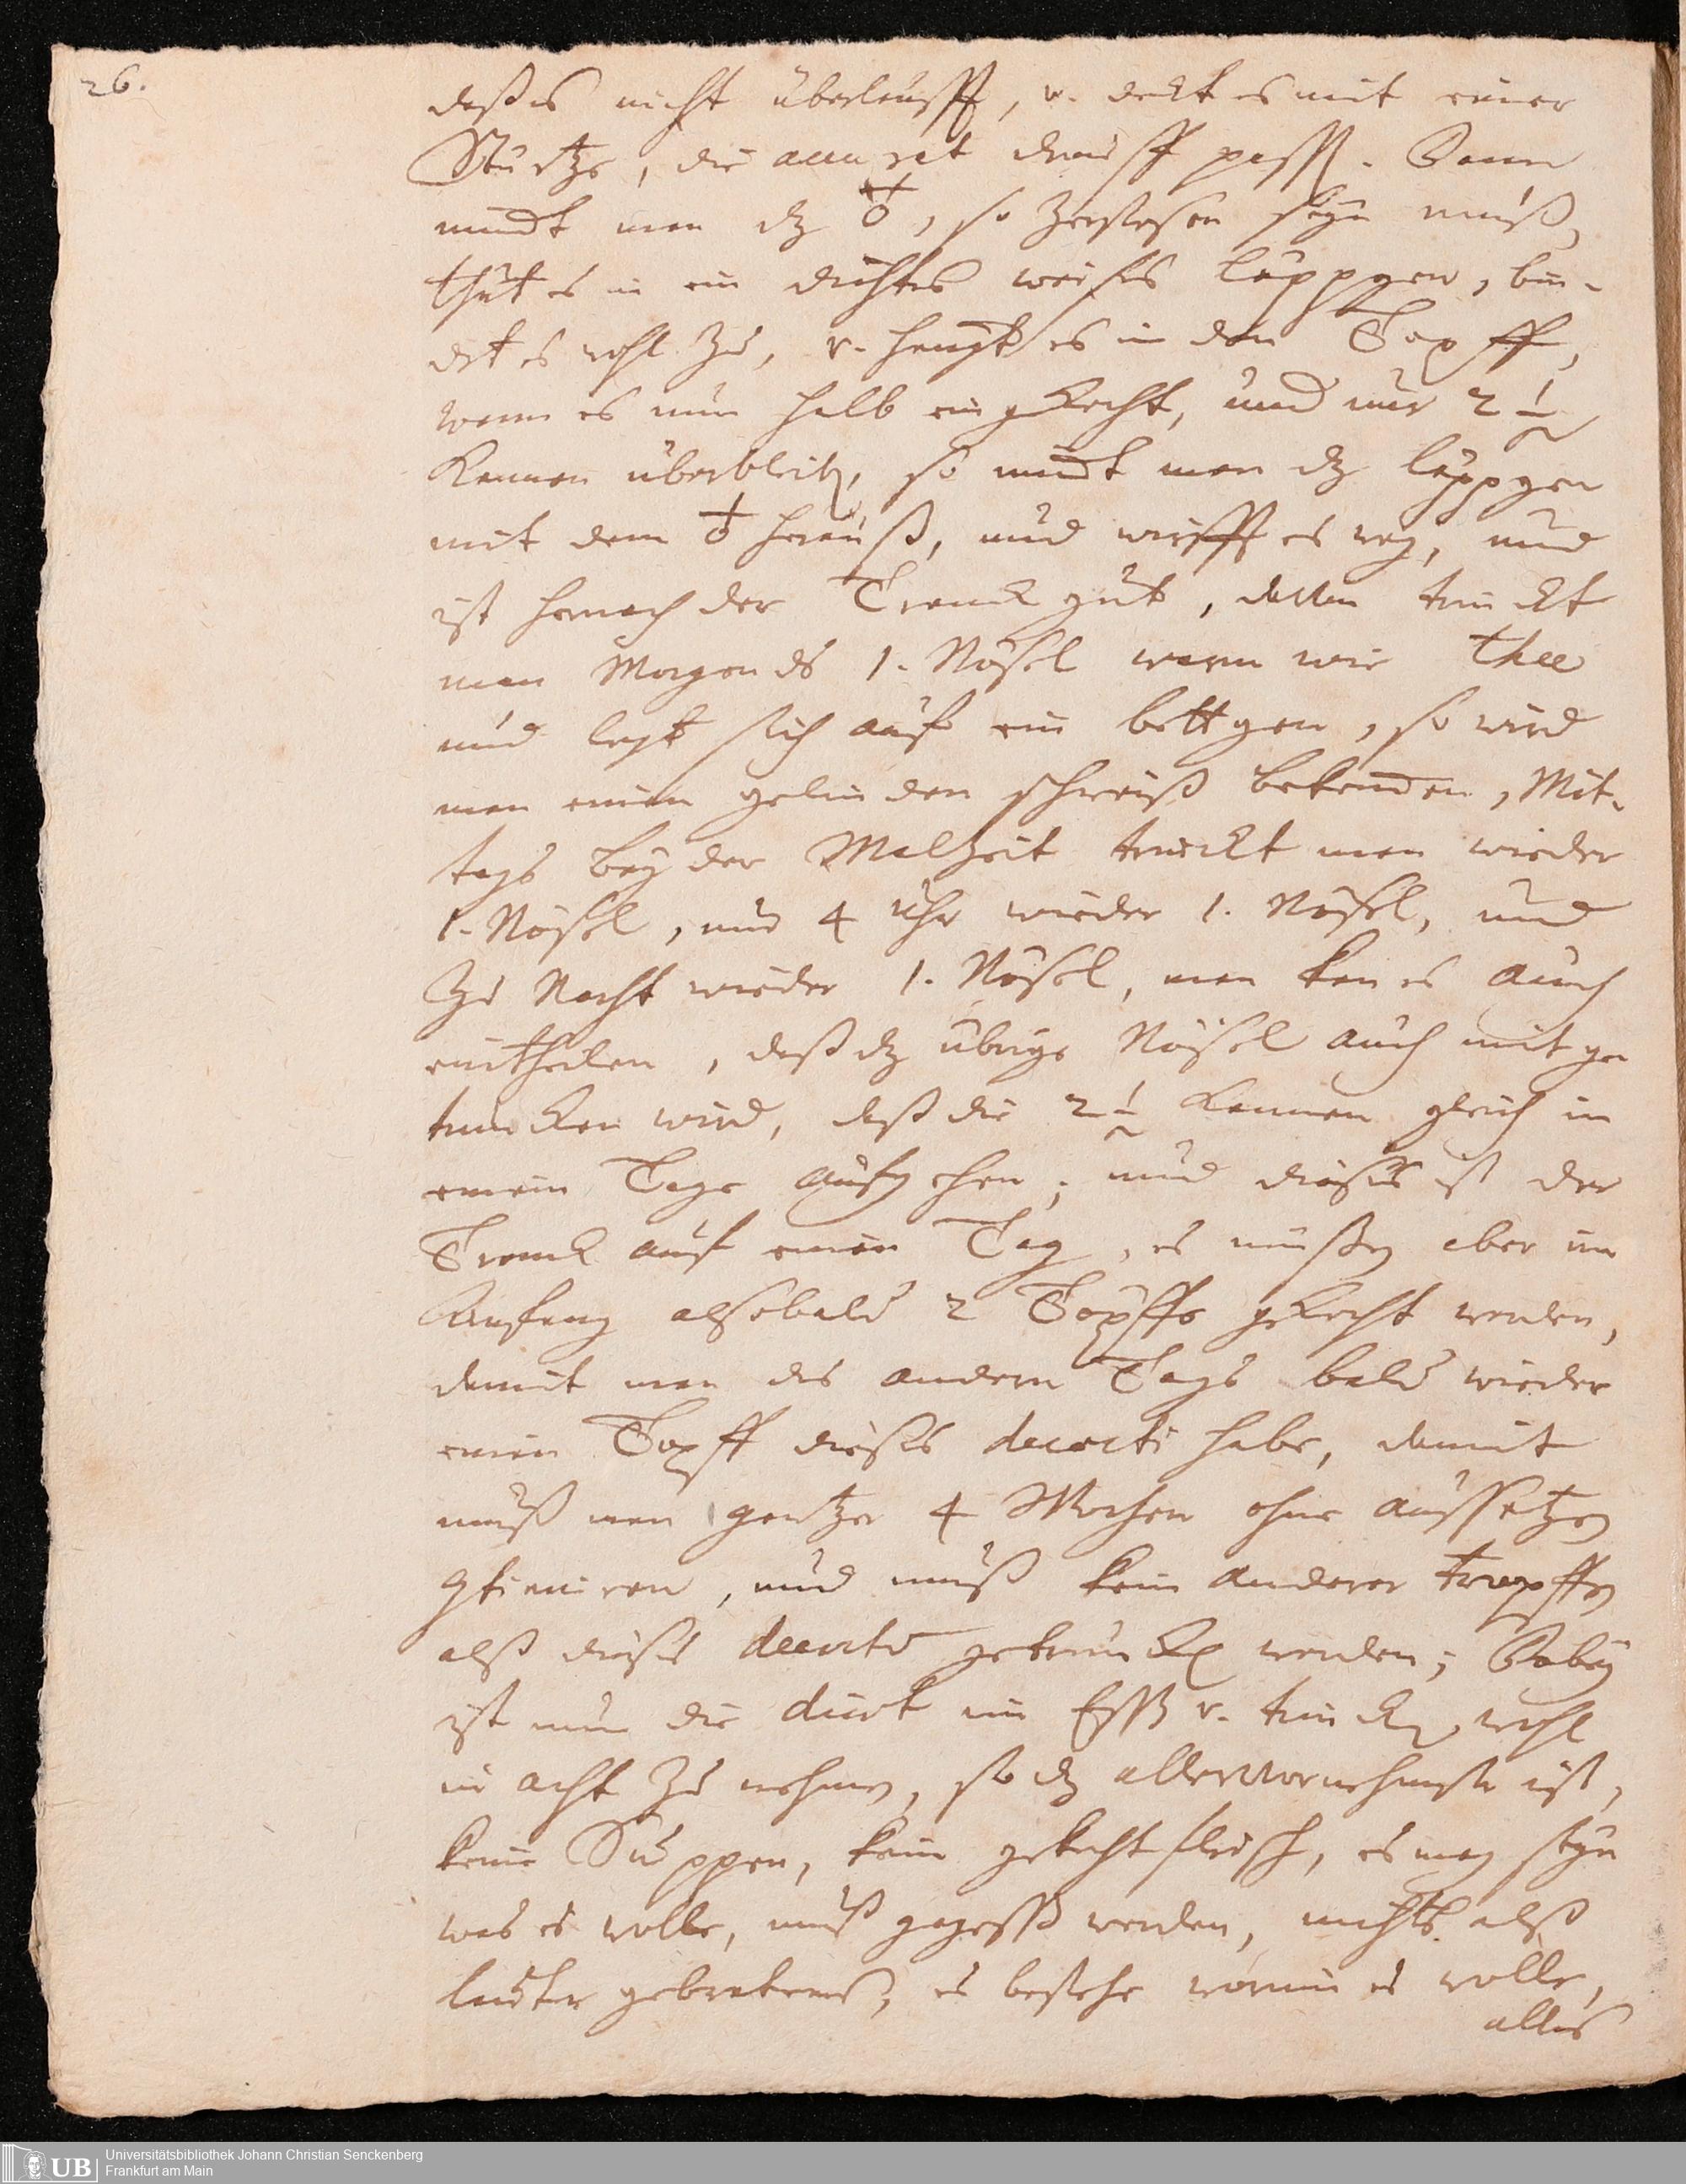 26.
daß es nicht überläufft, v. deckt es mit einer
Stürtze, die accurat drauff passt. Dann
nimbt man dz ♁, so zerstoßen seyn muß,
thut es in ein dichtes weißes läppgen, bin-
det es wohl zu, v. hengt es in den Topff,
wenn es nun halb eingekocht, und nur 2 ½
Kannen überbleibt, so nimbt man dz läppgen
mit dem ♁ herauß, und wirfft es weg, und
ist hernach der Tranck gut, deßen trinckt
man Morgends 1. Nößel warm wie thee
und legt sich auf ein bettgen, so wird
man einen gelinden schweiß bekommen, Mit-
tags bey der Malzeit trinckt man wieder
1. Nößel, um 4 Uhr wieder 1. Nößel, und
zu Nacht wieder 1. Nößel, man kan es auch
eintheilen, daß dz übrige Nößel auch mit ge
truncken wird, daß die 2 ½ Kannen gleich in
einem Tage aufgehen; und dieses ist der
Tranck auf einen Tag, es müßen aber im
Anfang alsobald 2 Töpffe gekocht werden,
damit man des andern Tags bald wieder
einen Topff dieses decocti habe, damit
muß man gantzer 4 Wochen ohne aussetzen
continuiren, und muß kein anderer tropffen
alß dieses decocto getruncken werden; Dabey
ist nun die diaet im Essen v. trincken wohl
in acht zu nehmen, so dz allervornehmste ist,
keine Suppen, kein gekocht fleisch, es mag seyn
was es wolle, muß gegessen werden, nichts alß
lauter gebratens, es bestehe worin es wolle,
alles
UB
Universitätsbibliothek Johann Christian Senckenberg
Frankfurt am Main